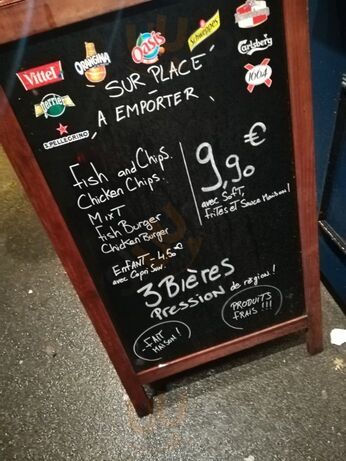 Vittel
ORANGINA
Oasis
Schweppes
Carlsberg
1664
Perrier
S.PELLEGRINO
SUR PLACE
A EMPORTER
Fish and Chips.
Chicken Chips.
MixT
Fish Burger
Chicken Burger
9,90 €
avec SoFT,
FRITES et Sauce Maison !
ENFANT - 4.50
avec Capri Sun.
3 BIÈRES
PRESSION de région !
- FAIT
MAISON !
PRODUITS
FRAIS !!!